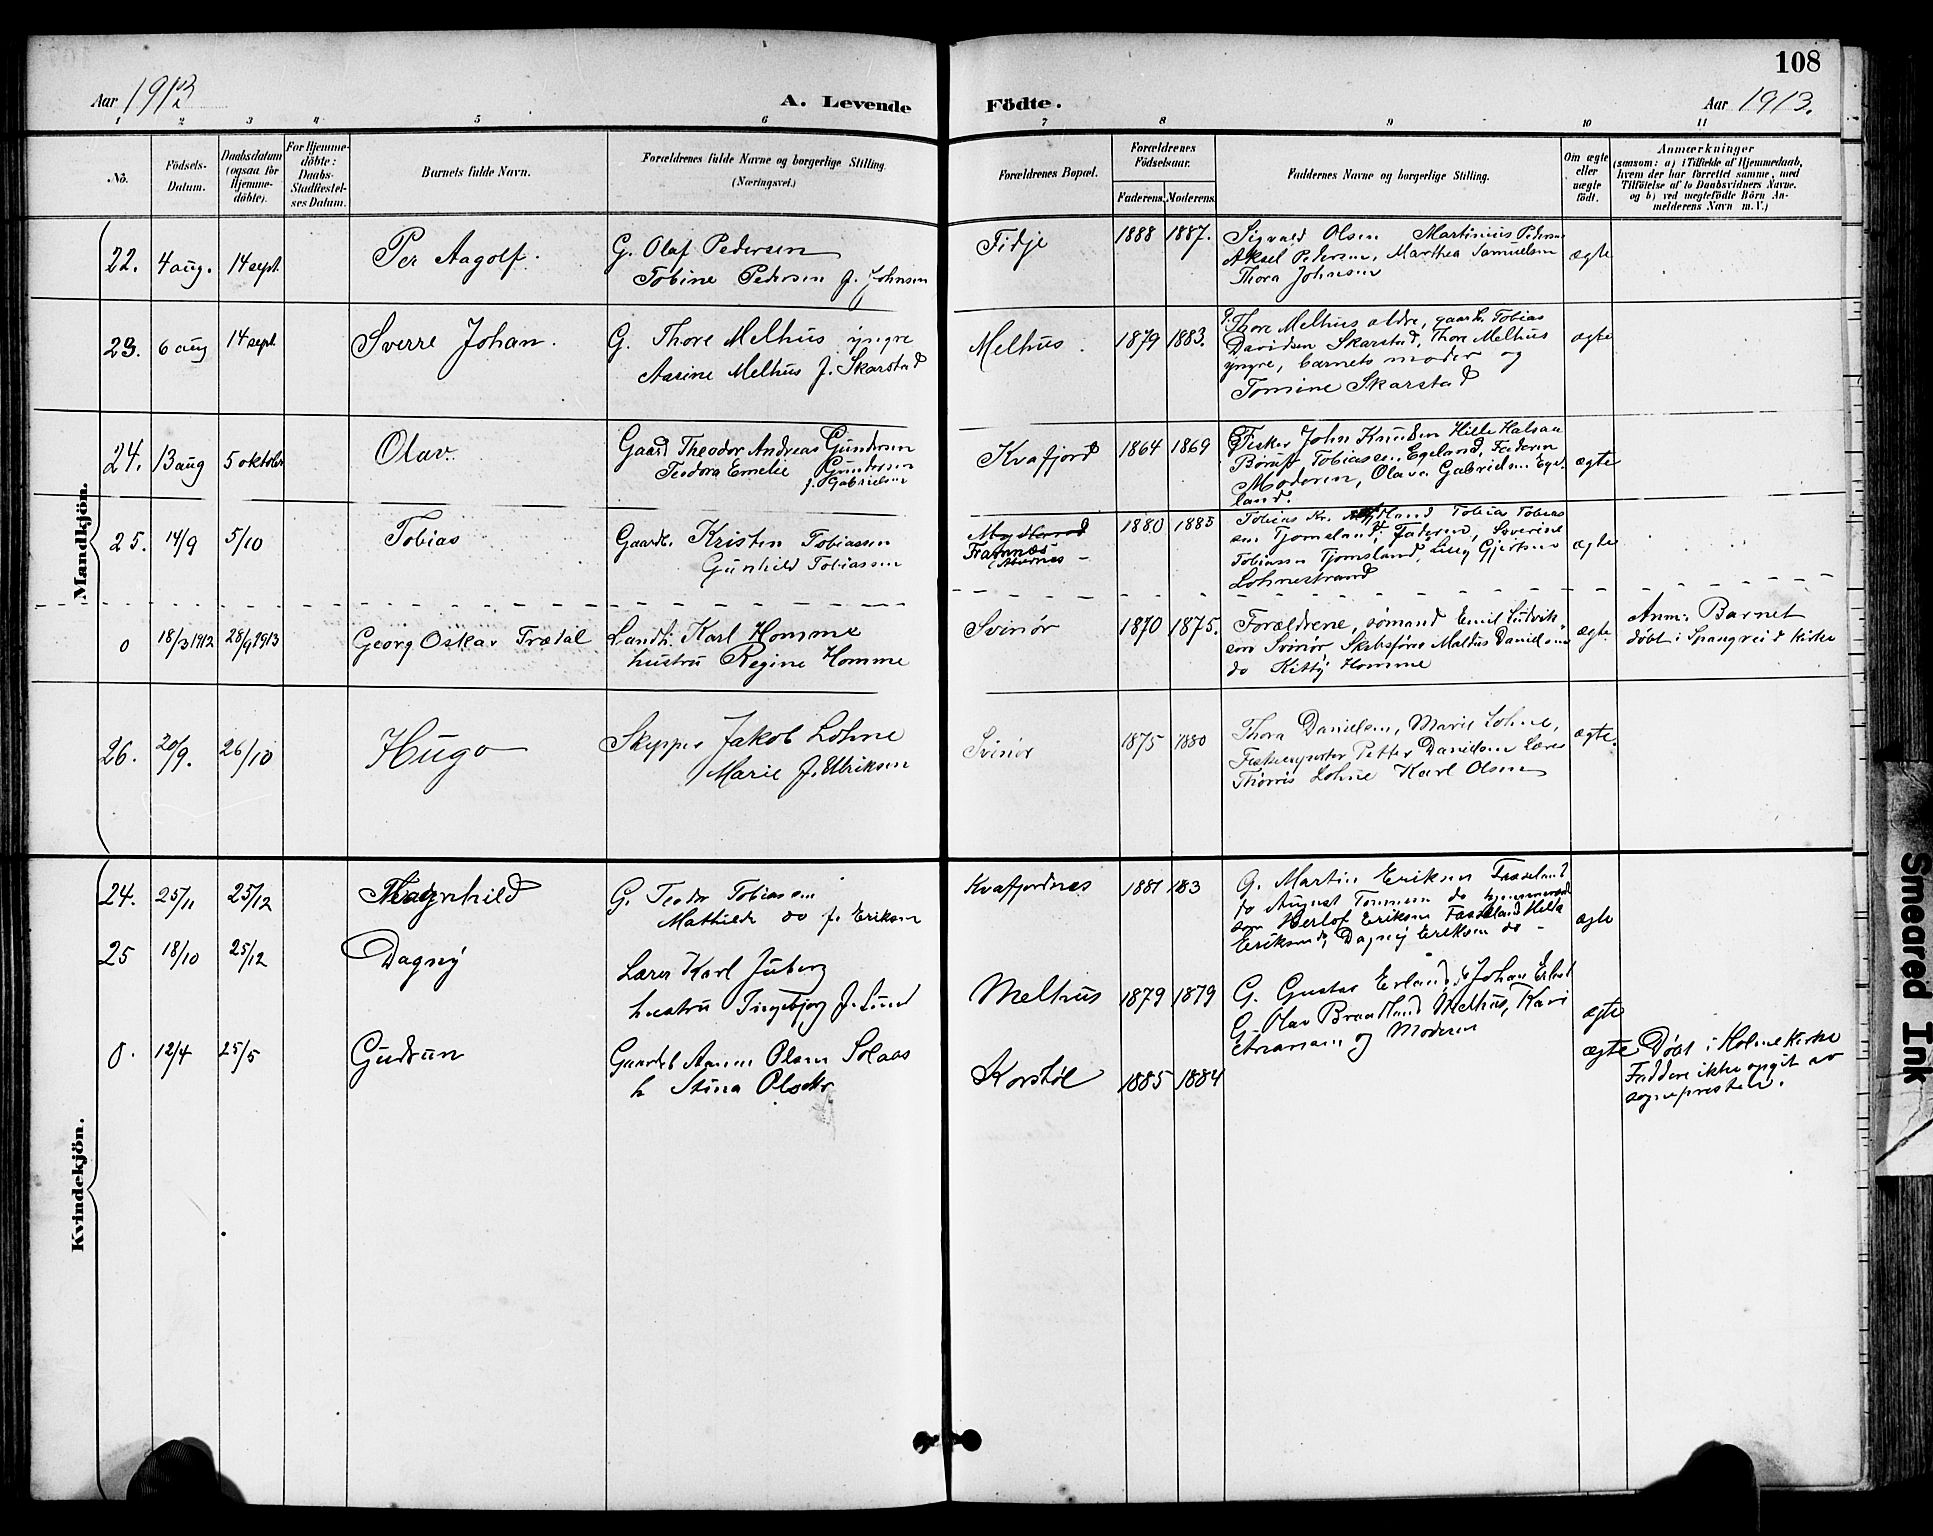 108
Aar 1913
A. Levende Födte.
Aar 1913.
1 2 3 4 5 6 7 8 9 10 11
No.
Födsels-Datum.
Daabsdatum (ogsaa for Hjemmedöbte).
For Hjemmedöbte: Daabs-Stadfæstelses Datum.
Barnets fulde Navn.
Forældrenes fulde Navne og borgerlige Stilling.
(Næringsvei.)
Forældrenes Bopæl.
Forældrenes Födselsaar.
Faderens. Moderens.
Faddernes Navne og borgerlige Stilling.
Om ægte eller uægte født.
Anmærkninger
(saasom: a) i Tilfælde af Hjemmedaab, hvem der har forrettet samme, med Tilföielse af to Daabsvidners Navne. og b) ved uægtefödte Börn Anmelderens Navn m. V.)
Mandkjön.
22. 4 aug. 14 sept. Per Aagolf. G. Olaf Pedersen
Tobine Pedersen f. Johnsen
Tidje 1888 1887. Sigvald Olsen Martinius Pedersen
Aksel Pedersen, Marthea Samuelsen
Thora Johnsen
ægte
23. 6 aug 14 sept Sverre Johan. G. Thore Melhus yngre
Aasine Melhus f. Skarstad
Melhus. 1879 1883. Thore Melhus ældre, gaardb. Tobias
Davidsen Skarstad, Thore Melhus
yngre, barnets moder og
Tomine Skarstad
ægte
24. 13 aug 5 oktober Olav. Gaard Theodor Andreas Gundersen
Teodora Emelie Gundersen
f. Gabrielsen
Kvafjord 1864 1869 Fisker John Knudsen Hille Halsaa
Børuf Tobiassen Egeland, Faderen
Moderen, Olava Gabrielsen Ege-
land.
ægte
25. 14/9 5/10 Tobias Gaardb. Kristen Tobiassen
Gunhild Tobiassen
Farmnes
1880 1885 Tobias Kr. Tobias Tobias
sen Tjomsland, Faderen, Severine
Tobiassen Tjomsland, Lisy Gjertsen
Lohnestrand
ægte
0 18/3 1912 28/9 1913 Georg Oskar Trædal Landh. Karl Homme
hustru Regine Homme
Svinør 1870 1875. Forældrene, sømand Emil Ludvik-
sen Svinør, Skibsfører Maldus Danielsen
do Kitty Homme
ægte
Anm: Barnet
døbt i Spangreid kirke
26. 20/9. 26/10 Hugo Skipper Jakob Lohne
Marie f. Ulriksen
Svinør 1875 1880 Thora Danielsen, Marie Lohne,
Petter Danielsen Lærer
Thorris Lohne Karl Olsen
ægte.
Kvindekjön.
24. 25/11 25/12 Magnhild G. Teodor Tobiassen
Mathilde do f. Eriksen
Kvafjordnes 1881 183 G. Martin Eriksen Fasseland
do August Tommesen do
som Herlof Eriksen Fasseland Helta
Eriksen do, Dagny Eriksen do -
ægte
25 18/10 25/12 Dagny Lærer Karl Juberg
hustru Ingebjorg f. Lund
Melhus 1879 1879 G. Gustav Erland, G Johan
G. Olav Brandland Melhus, Kari
Abrahamsen og Moderen
ægte
0. 12/4 25/5 Gudrun Gaardb Aanen Olsen Solaas
h Stina Olsdtr
Korstøl 1885 1884
ægte
Døbt i Holme Kirke
Faddere ikke opgit av
sognepresten.
Smeared Ink